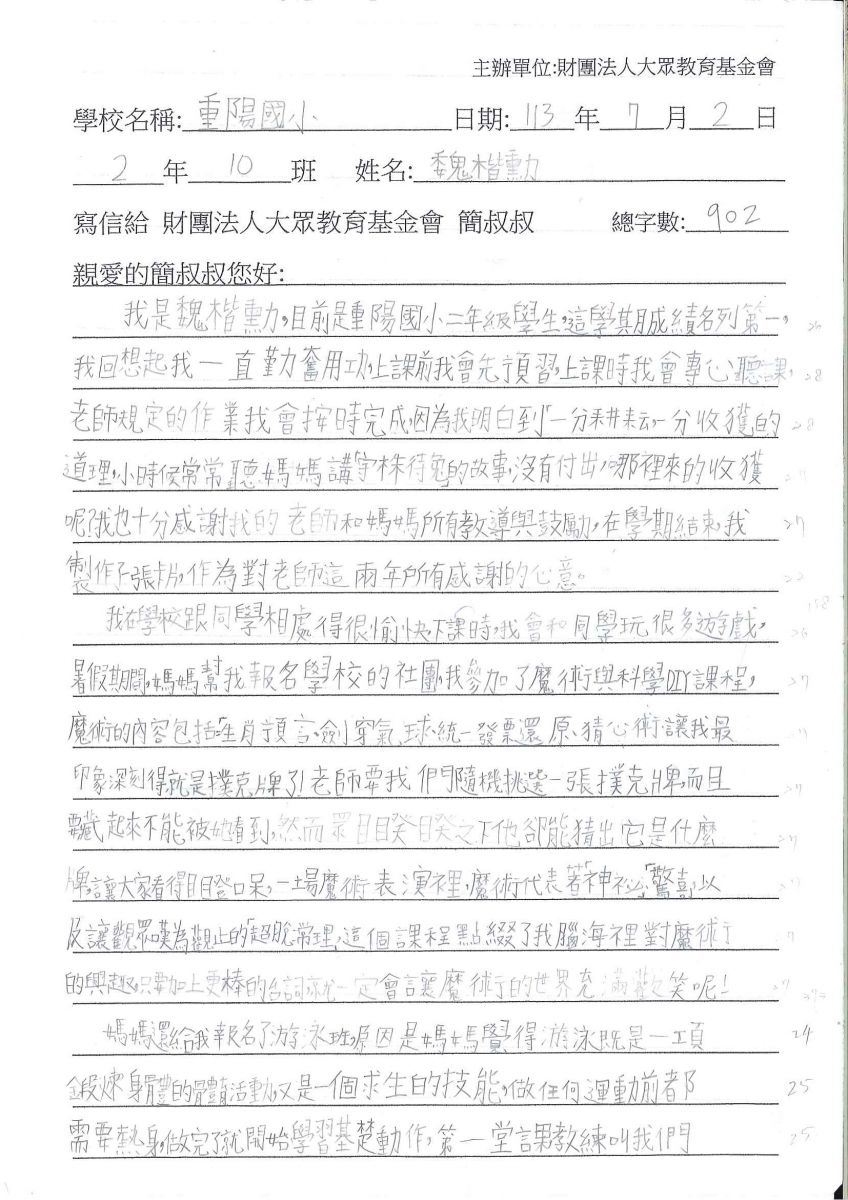 主辦單位:財團法人大眾教育基金會
學校名稱: 重陽國小 日期: 113 年 7 月 2 日
2 年 10 班 姓名: 魏楷勳
寫信給 財團法人大眾教育基金會 簡叔叔 總字數: 902
親愛的簡叔叔您好:
我是魏楷勳,目前是重陽國小二年級學生,這學期成績名列第一, 26
我回想起我一直勤力奮用功,上課前我會先預習,上課時我會專心聽課, 28
老師規定的作業我會按時完成,因為我明白到「一分耕耘,一分收獲的 28
道理,小時候常常聽媽媽講「守株待兔」的故事,沒有付出,哪裡來的收獲
呢?我也十分感謝我的老師和媽媽所有教導與鼓勵,在學期結束,我 27
製作了張卡片,作為對老師這兩年所有感謝的心意。 22
158
我在學校跟同學相處得很愉快,下課時,我會和同學玩很多遊戲, 26
暑假期間,媽媽幫我報名學校的社團,我參加了魔術與科學DIY課程, 27
魔術的內容包括:生肖預言、劍穿氣球、統一發票還原、猜心術,讓我最
印象深刻得就是撲克牌了!老師要我們隨機挑選一張撲克牌,而且 27
要藏起來不能被她看到,然而眾目睽睽之下他卻能猜出它是什麼 27
牌,讓大家看得目瞪口呆,一場魔術表演裡,魔術代表著「神祕」「驚喜」以 27
及讓觀眾嘆為觀止的「超脫常理,這個課程點綴了我腦海裡對魔術 27
的興趣,只要加上更棒的台詞就一定會讓魔術的世界充滿歡笑呢! 27
媽媽還給我報名了游泳班,原因是媽媽覺得游泳既是一項 24
鍛煉身體的體育活動,又是一個求生的技能,做任何運動前都 25
需要熱身,做完了就開始學習基楚動作,第一堂課教練叫我們 25